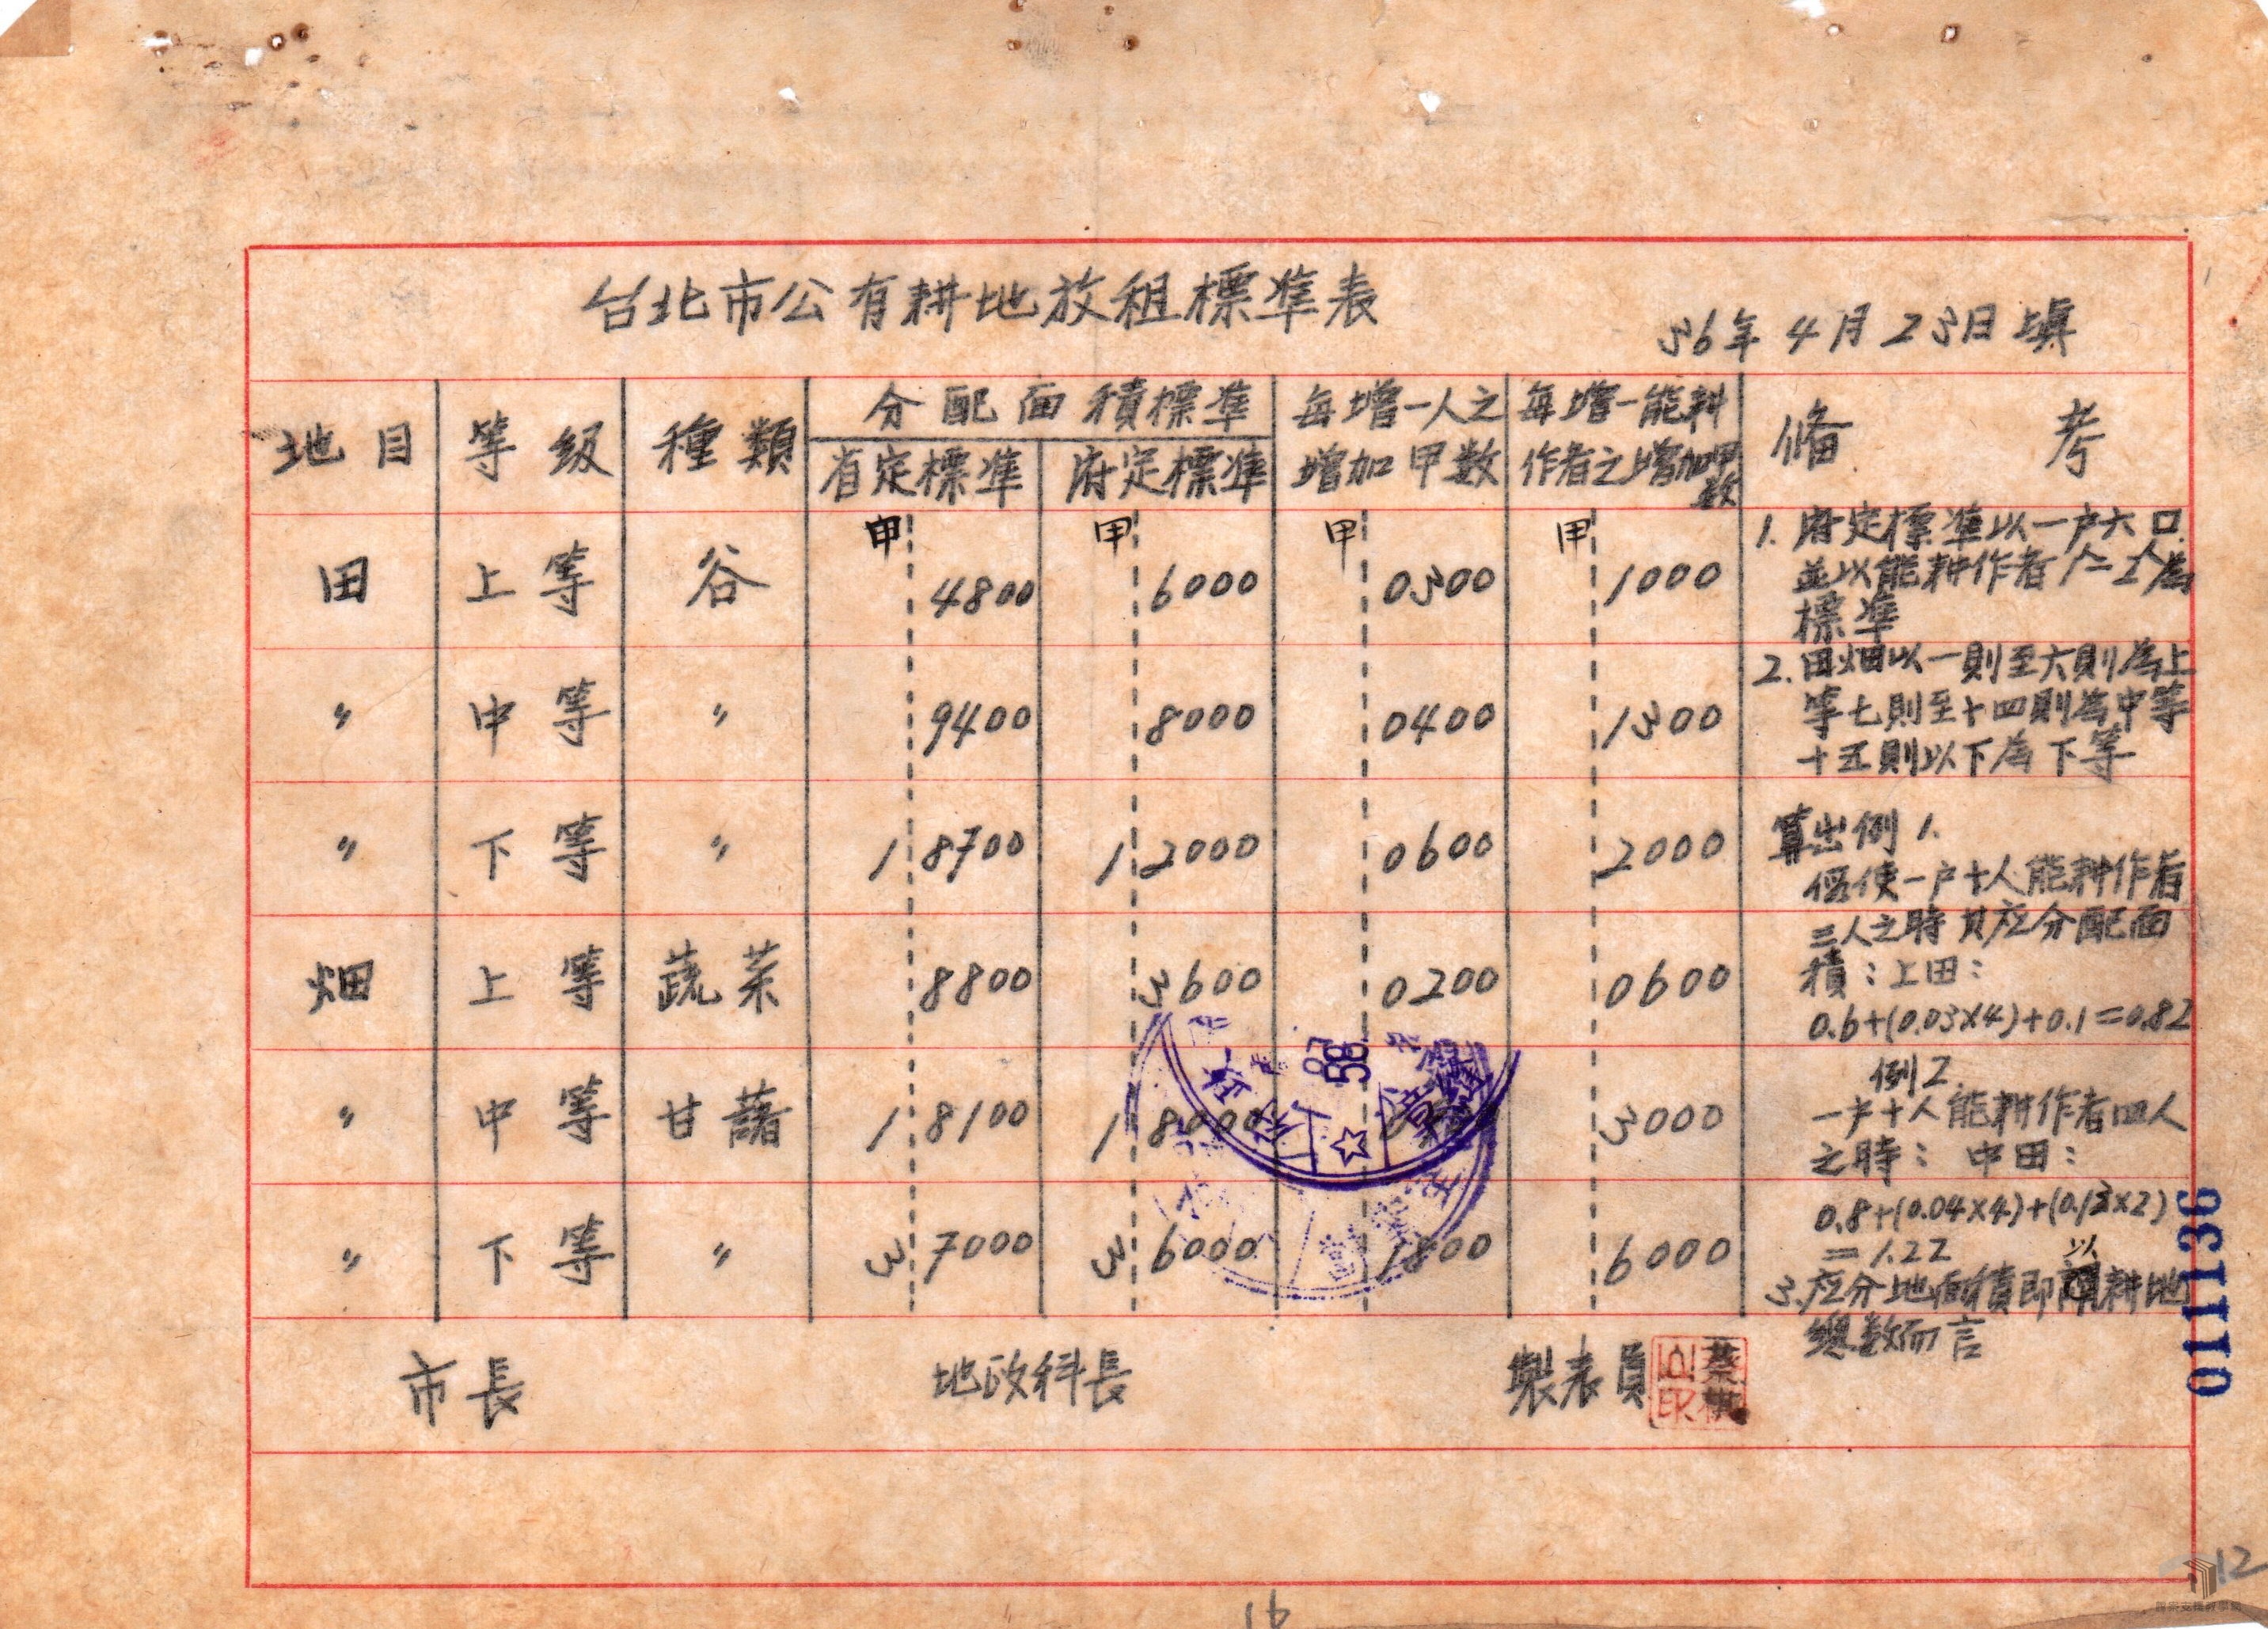 台北市公有耕地放租標準表
36年4月23日填
地目 等級 種類 分配面積標準 每增一人之增加甲數 每增一能耕作者之增加甲數 備考
省定標準 府定標準
甲 甲 甲 甲
田 上等 谷 4800 6000 0300 1000
〃 中等 〃 9400 8000 0400 1300
〃 下等 〃 1 8700 1 2000 0600 2000
畑 上等 蔬菜 8800 3600 0200 0600
〃 中等 甘藷 1 8100 1 8000 3000
〃 下等 〃 3 7000 3 6000 1800 6000
1. 府定標準以一户六口
並以能耕作者 二人為
標準
2. 田畑以一則至六則為上
等七則至十四則為中等
十五則以下為下等
算出例1.
假使一户十人能耕作者
三人之時其应分配面
積：上田：
0.6+(0.03×4)+0.1=0.82
例2
一户十人能耕作者四人
之時：中田：
0.8+(0.04×4)+(0.13×2)
=1.22
3. 应分地面積即以耕地
總數而言
市長 地政科長 製表員
58
011136
12
16